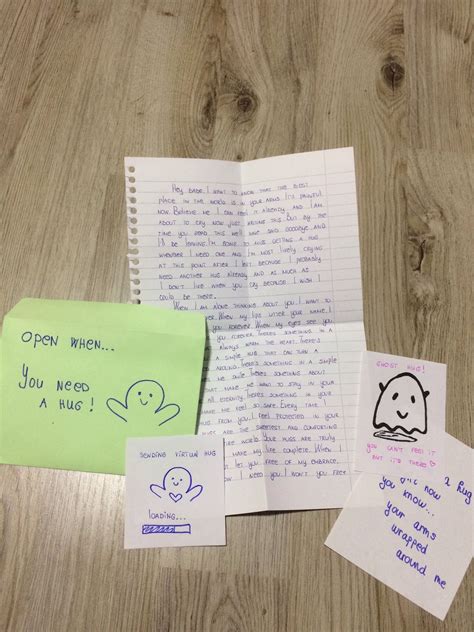 OPEN WHEN...
YOU NEED
A HUG!
HEY BABE. I WANT TO KNOW THAT THE BEST
PLACE IN THE WORLD IS IN YOUR ARMS. IT'S PAINFUL
NOW. BELIEVE ME I CAN FEEL IT ALREADY AND I AM
ABOUT TO CRY NOW JUST WRITING THIS. BUT BY THE
TIME YOU READ THIS WE'LL HAVE SAID GOODBYE AND
I'LL BE LEAVING. I'M GOING TO MISS GETTING A HUG
WHENEVER I NEED ONE AND I'M MOST LIKELY CRYING
AT THIS POINT AFTER I LEFT BECAUSE I PROBABLY
NEED ANOTHER HUG ALREADY AND AS MUCH AS
I DON'T LIKE WHEN YOU CRY BECAUSE I WISH I
COULD BE THERE.
WHEN I AM ALONE THINKING ABOUT YOU I WANT TO
WHEN MY LIPS UTTER YOUR NAME I
YOU FOREVER. WHEN MY EYES SEE YOU
YOU FOREVER. THERE'S SOMETHING IN A
ALWAYS THE HEART. THERE'S
A SIMPLE HUG THAT CAN TURN A
AROUND. THERE'S SOMETHING IN A SIMPLE
THERE'S SOMETHING ABOUT
THAT MAKE ME WANT TO STAY IN YOUR
THERE'S SOMETHING FROM
ME FEEL SO SAFE. EVERY TIME I
FROM YOU, I FEEL PROTECTED IN YOUR
ARE THE SWEETEST AND COMFORTING
WORLD. YOUR HUGS ARE TRULY
MAKE MY LIFE COMPLETE. WHEN I
LET YOU FREE OF MY EMBRACE.
I NEED YOU. I WON'T YOU FREE
SENDING VIRTUAL HUG
LOADING...
GHOST HUG!
YOU CAN'T FEEL IT
BUT IT'S THERE
a hug
now
you know..
your arms
wrapped
around me